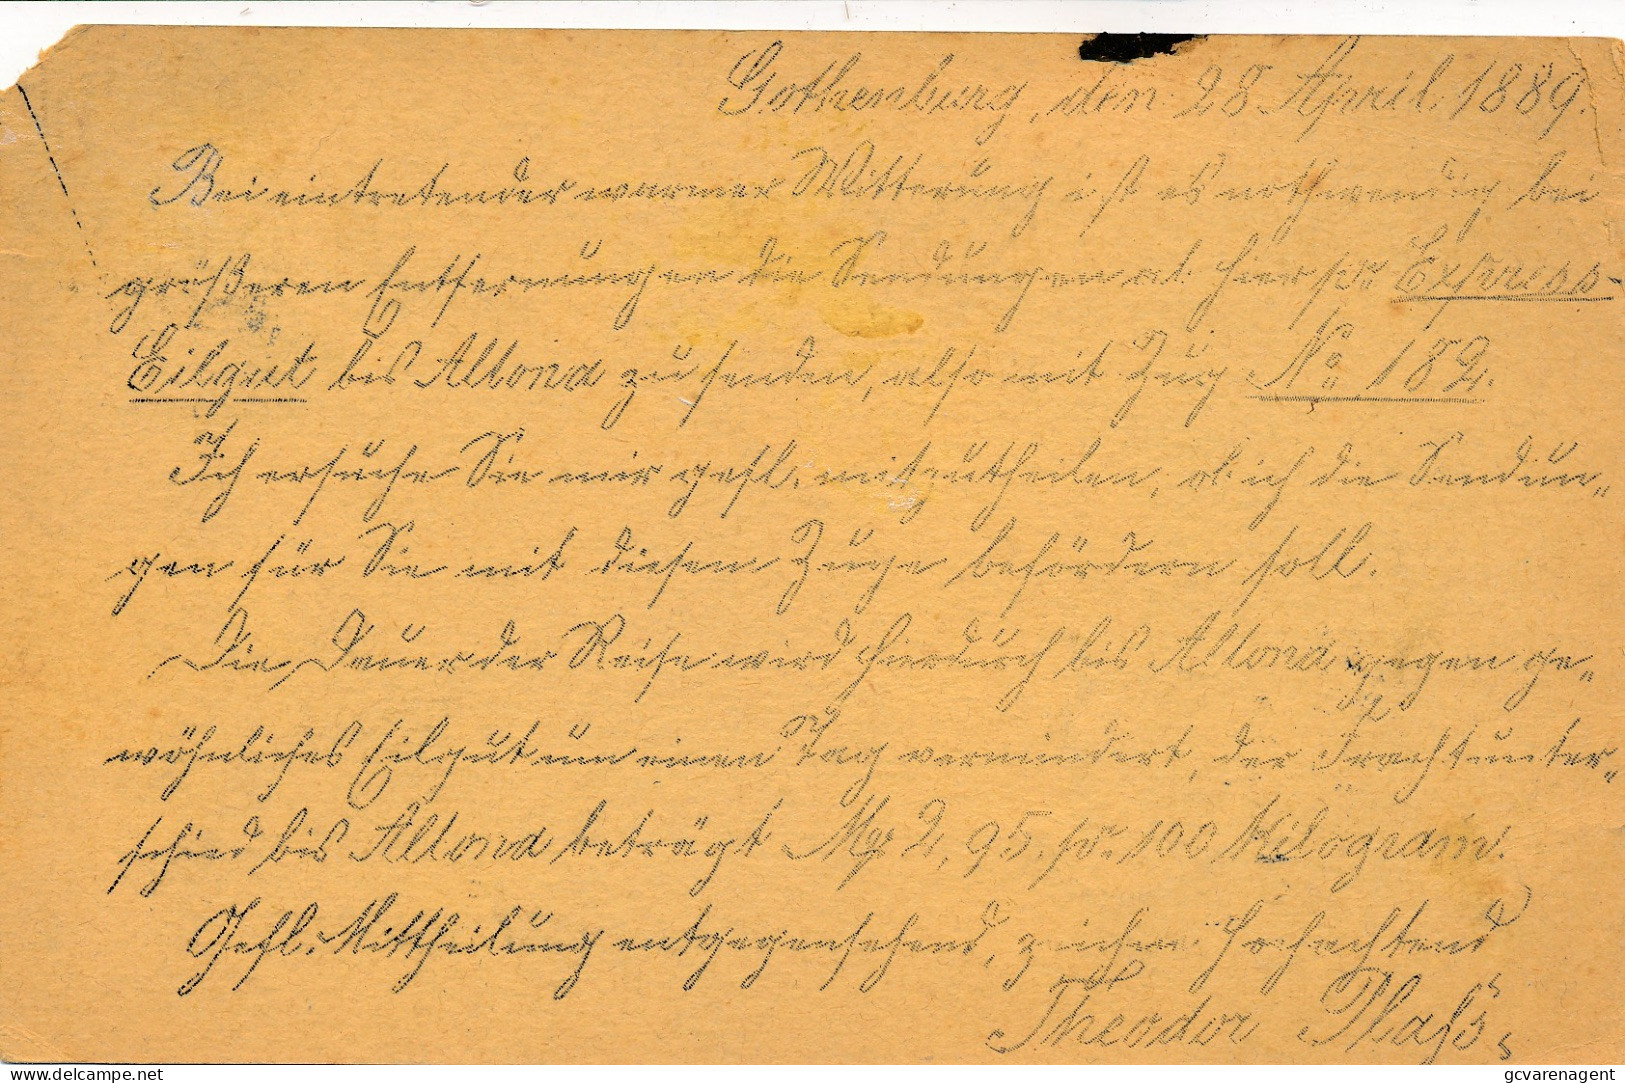 Gothenburg, den 28 April 1889.
Bei eintretender warmer Witterung ist es nothwendig bei
größeren Entfernungen die Sendungen ab hier pr. Express-
Eilgut bis Altona zu senden, also mit Zug No 182.
Ich ersuche Sie mir gefl. mitzutheilen, ob ich die Sendun„
gen für Sie mit diesen Zuge befördern soll.
Die Dauer der Reise wird hierdurch bis Altona gegen ge„
wöhnliches Eilgut um einen Tag vermindert, der Frachtunter„
schied bis Altona beträgt 2,95. pr. 100 Kilogram.
Gefl. Mittheilung entgegensehend, zeichne Hochachtend
Theodor Plaß.
delcampe.net
gcvarenagent